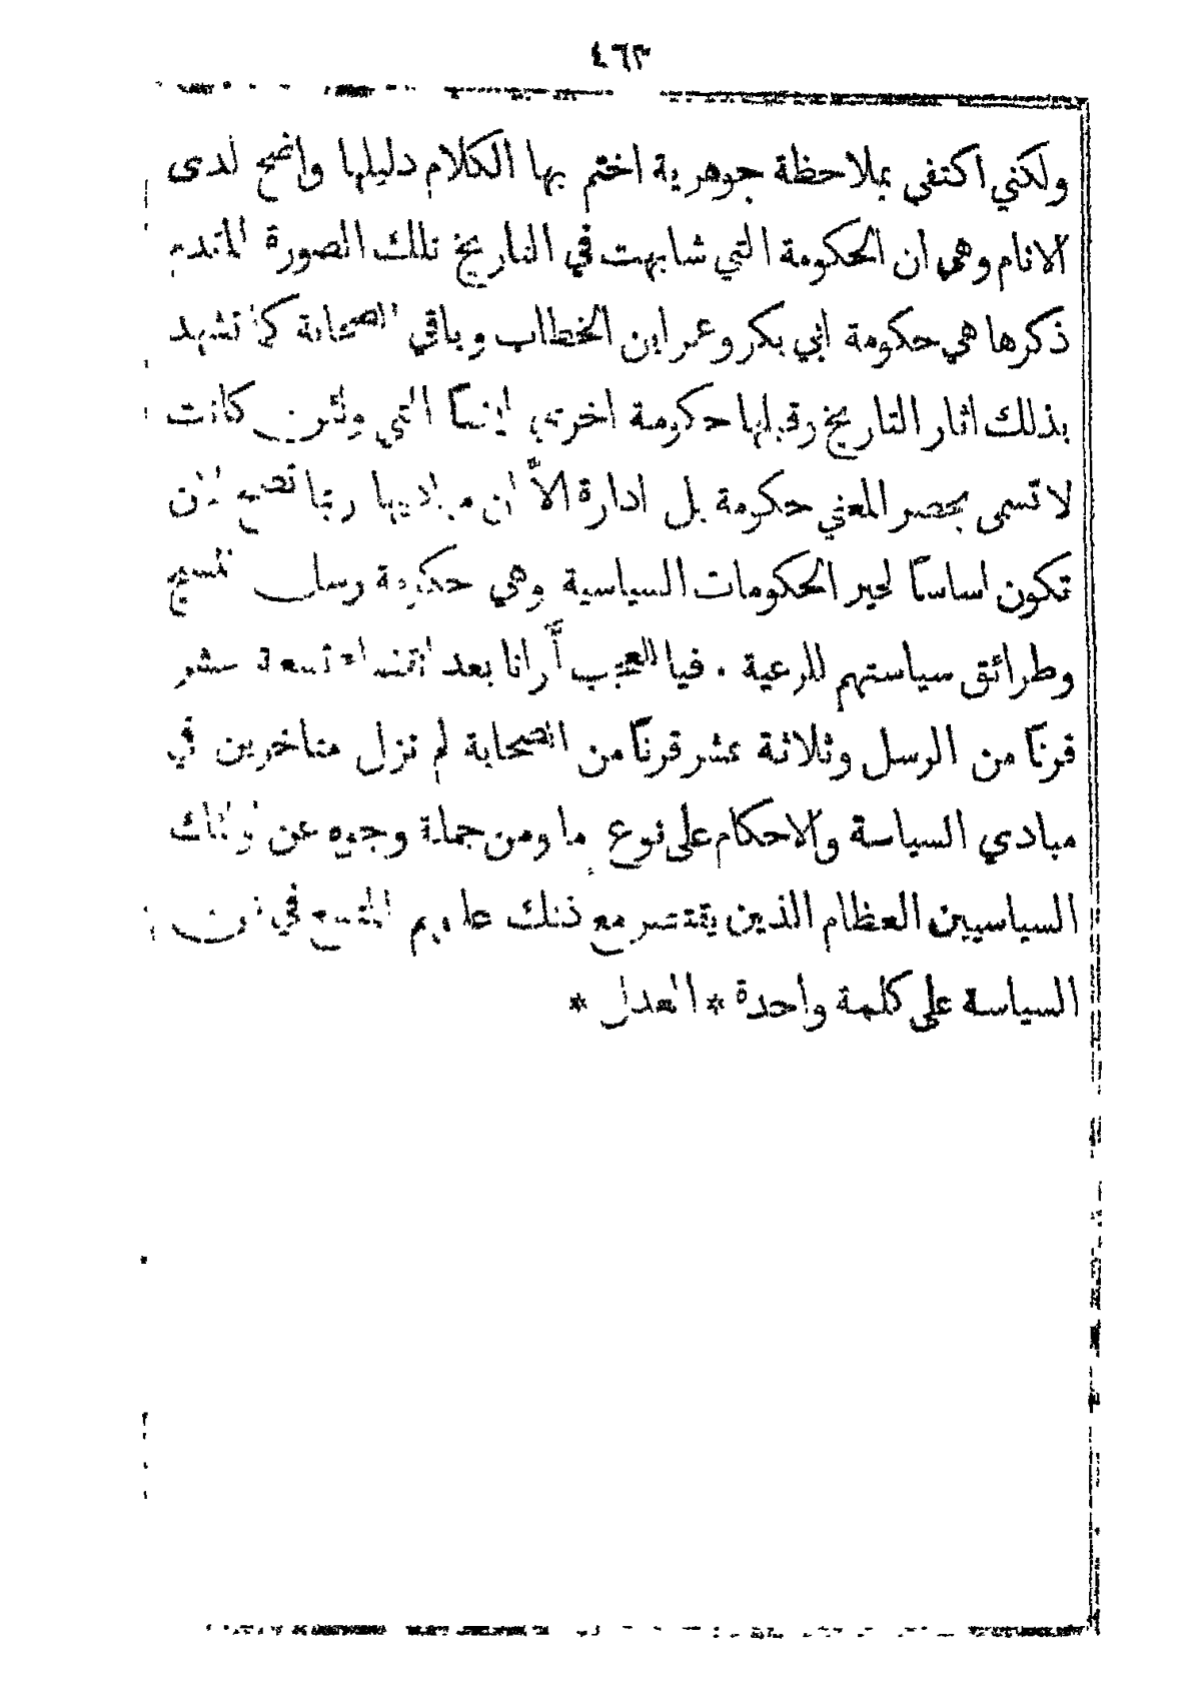 ٤٦٣
ولكني اكتفي بملاحظة جوهرية اختم بها الكلام دليلها واضح لدى
الانام وهي ان الحكومة التي شابهت في التاريخ تلك الصورة المتقدم
ذكرها هي حكومة ابي بكر وعمر ابن الخطاب وباقي الصحابة كما تشهد
بذلك اثار التاريخ وقبلها حكومة اخرى ايضاً التي ولئن كانت
لا تسمى بحصر المعني حكومة بل ادارة الاَّ ان مباديها ربما تصح لان
تكون اساساً لخير الحكومات السياسية وهي حكومة رسل المسيح
وطرائق سياستهم للرعية . فيا للعجب أَرانا بعد انقضاء تسعة عشر
قرناً من الرسل وثلاثة عشر قرناً من الصحابة لم نزل متاخرين في
مبادي السياسة والاحكام على نوع ما ومن جملة وجوه عن اولئك
السياسيين العظام الذين يقتصر مع ذلك المتسع في
السياسة على كلمة واحدة * العدل *